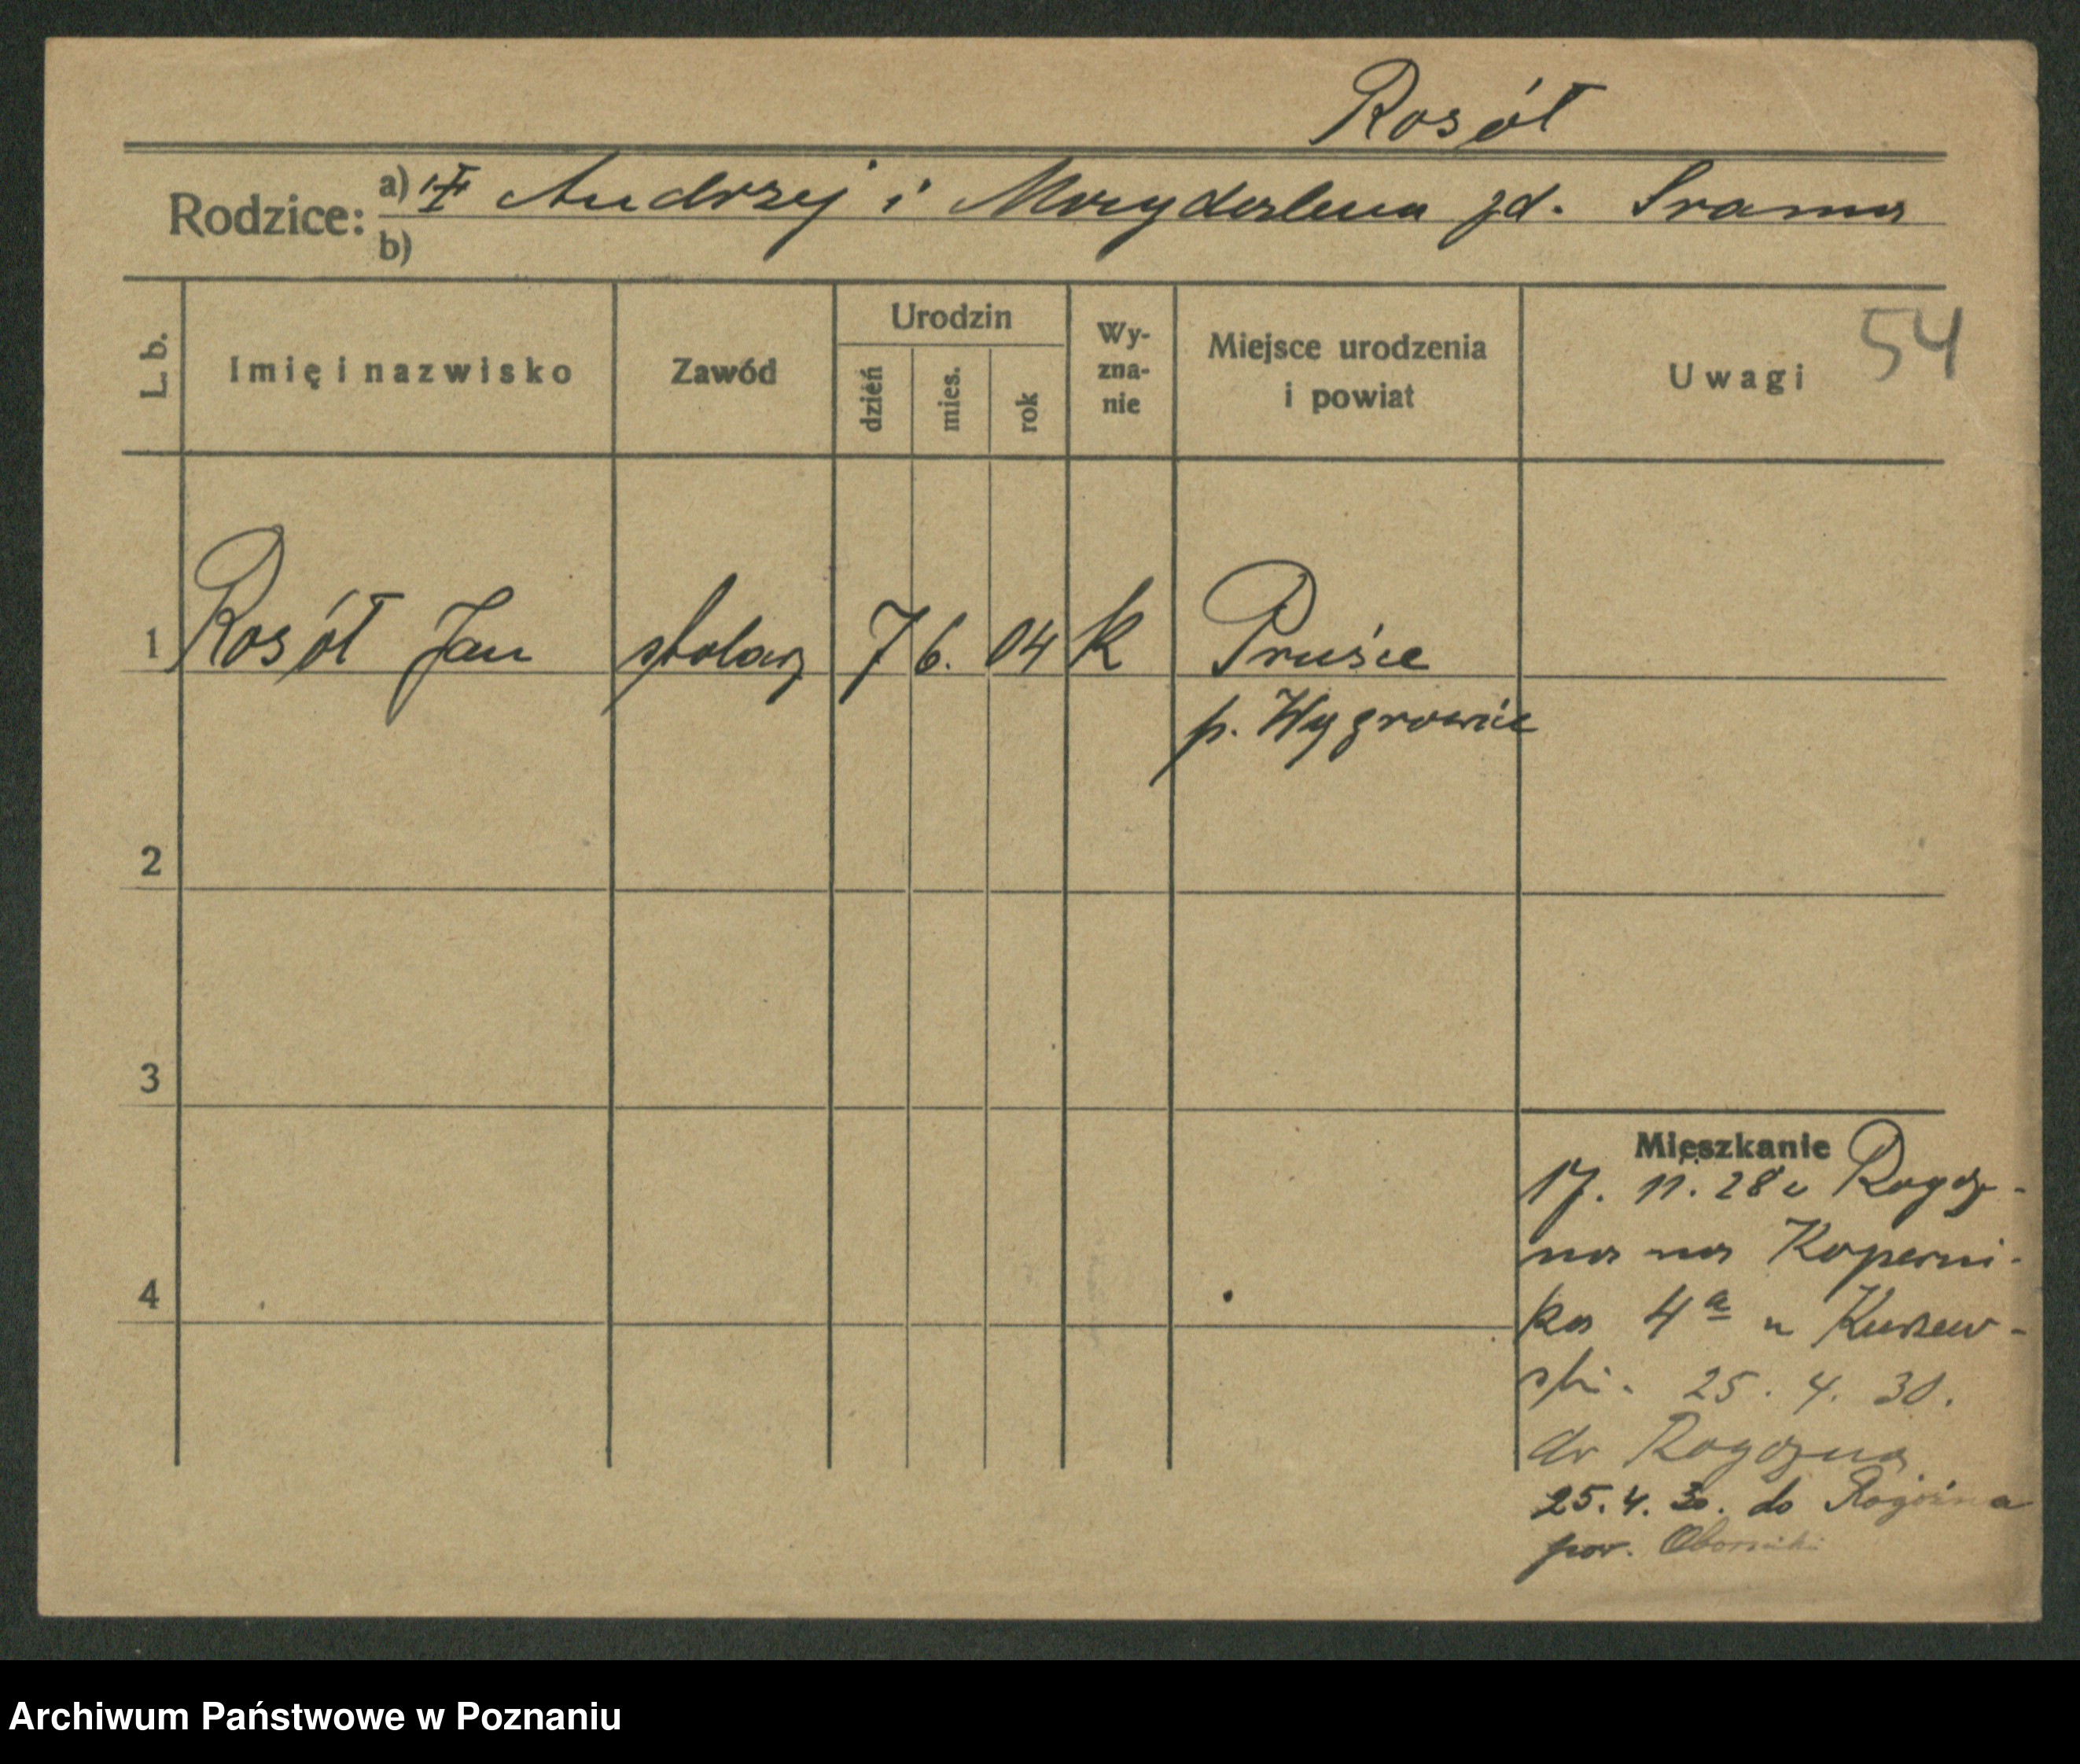 Rosół
Rodzice: a) Andrzej i Magdalena zd. Srama
b)
L. b. Imię i nazwisko Zawód Urodzin dzień mies. rok Wy-zna-nie Miejsce urodzenia i powiat Uwagi 54
1 Rosół Jan stolarz 7 6. 04 K Pruśce
p. Wągrowiec
2
3
4
Mieszkanie
17. 11. 28 z Rogoź-
na na Koperni-
ka 4a u
ski. 25. 4. 30.
do Rogoźna
25. 4. 30. do Rogoźna
pow. Oborniki
Archiwum Państwowe w Poznaniu